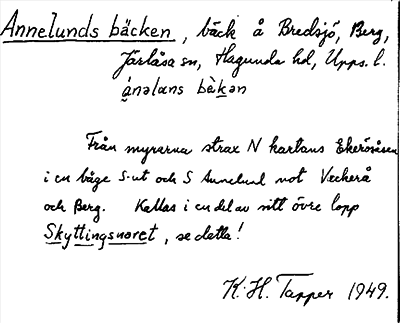 Annelunds bäcken, bäck å Bredsjö, Berg,
Järlåsa sn, Hagunda hd, Upps. l.
ánəlans bèkən
Från myrarna strax N kartans Ekeröåsen
i en båge S-ut och S Annelund mot Veckerå
och Berg. Kallas i en del av sitt övre lopp
Skyttingsnoret, se detta!
K. H. Tapper 1949.